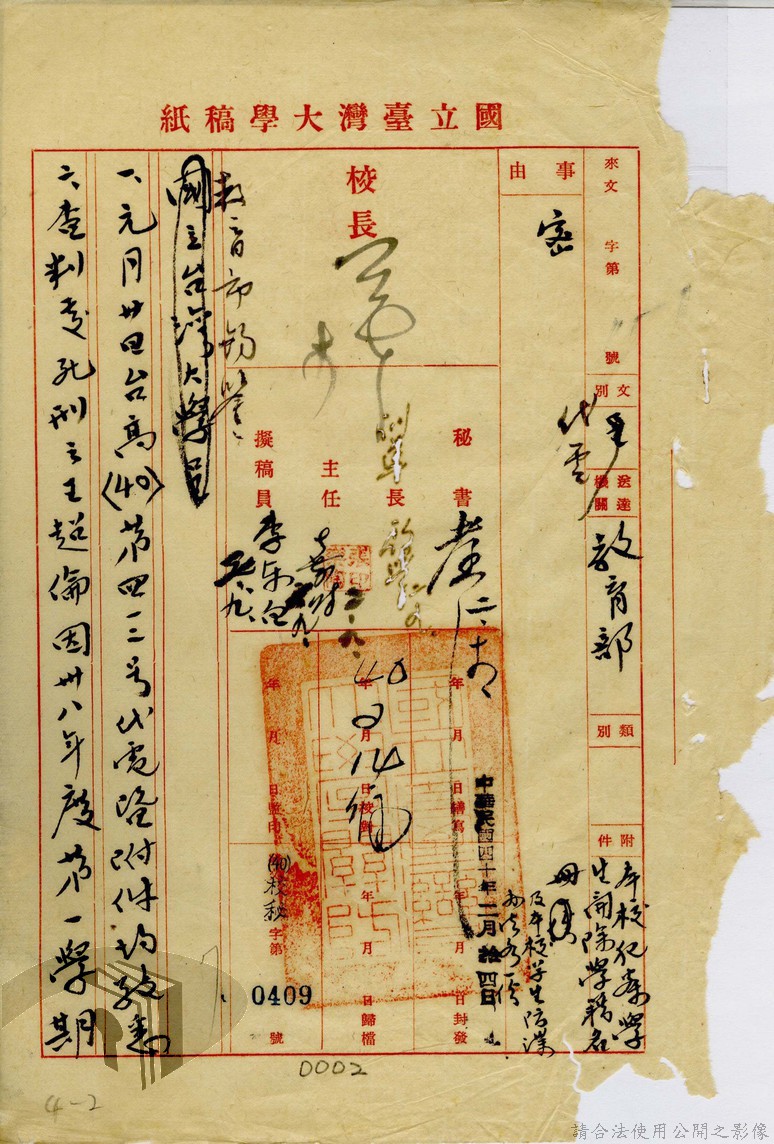 國立臺灣大學稿紙
來文 字第 號
文別 代電
送達機關 教育部
類別
附件 本校犯案學生開除學籍名冊
及本校學生防諜
事由
密
校長
秘書
長
主任
擬稿員
二、九、
年 月 日繕寫
年 月 日校對
年 月 日監印
年 月 日封發
年 月 日歸檔
中華民國四十年二月拾四日
(40)校秘字第 0409 號
教育部鈞鑒:
國立台灣大學呈
一、元月廿四日台高(40)第四一二号代電暨附件均敬悉
六、查判處死刑之王超倫因卅八年度第一學期
0002
4-2
請合法使用公開之影像